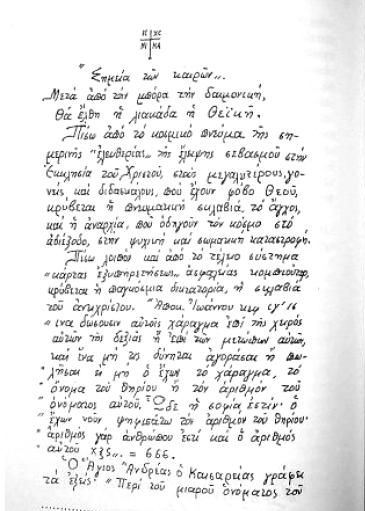 ΙΣ ΧΣ
ΝΙ ΚΑ
"Σημεῖα τῶν καιρῶν".
Μετά ἀπό τήν μπόρα τήν δαιμονική,
Θά ἔλθη ἡ λιακάδα ἡ Θεϊκή.
Πίσω ἀπό τό κοσμικό πνεῦμα τῆς ση-
μερινῆς "ἐλευθερίας" τῆς ἔλλειψης σεβασμοῦ στήν
Ἐκκλησία τοῦ Χριστοῦ, στούς μεγαλυτέρους, γο-
νεῖς καί διδασκάλους, πού ἔχουν φόβο Θεοῦ,
κρύβεται ἡ πνευματική σκλαβιά, τό ἄγχος,
καί ἡ ἀναρχία, πού ὁδηγοῦν τόν κόσμο στό
ἀδιέξοδο, στήν ψυχική καί σωματική καταστροφή.
Πίσω λοιπόν καί ἀπό τό τέλειο σύστημα
"κάρτας ἐξυπηρετήσεως" ἀσφαλείας κομπιοῦτερ,
κρύβεται ἡ παγκόσμια δικτατορία, ἡ σκλαβιά
τοῦ ἀντιχρίστου. "Ἀποκ. Ἰωάννου κεφ ιγ' 16
"ἵνα δώσουσιν αὐτοῖς χάραγμα ἐπί τῆς χειρός
αὐτῶν τῆς δεξιᾶς ἤ ἐπί τῶν μετώπων αὐτῶν,
καί ἵνα μή τις δύνηται ἀγοράσαι ἤ πω-
λῆσαι εἰ μή ὁ ἔχων τό χάραγμα, τό
ὄνομα τοῦ θηρίου ἤ τόν ἀριθμόν τοῦ
ὀνόματος αὐτοῦ. Ὧδε ἡ σοφία ἐστίν· ὁ
ἔχων νοῦν ψηφισάτω τόν ἀριθμόν τοῦ θηρίου·
ἀριθμός γάρ ἀνθρώπου ἐστί καί ὁ ἀριθμός
αὐτοῦ χξς". = 666.
Ὁ Ἅγιος Ἀνδρέας ὁ Καισαρείας γράφει
τά ἑξῆς· "Περί τοῦ μιαροῦ ὀνόματος τοῦ